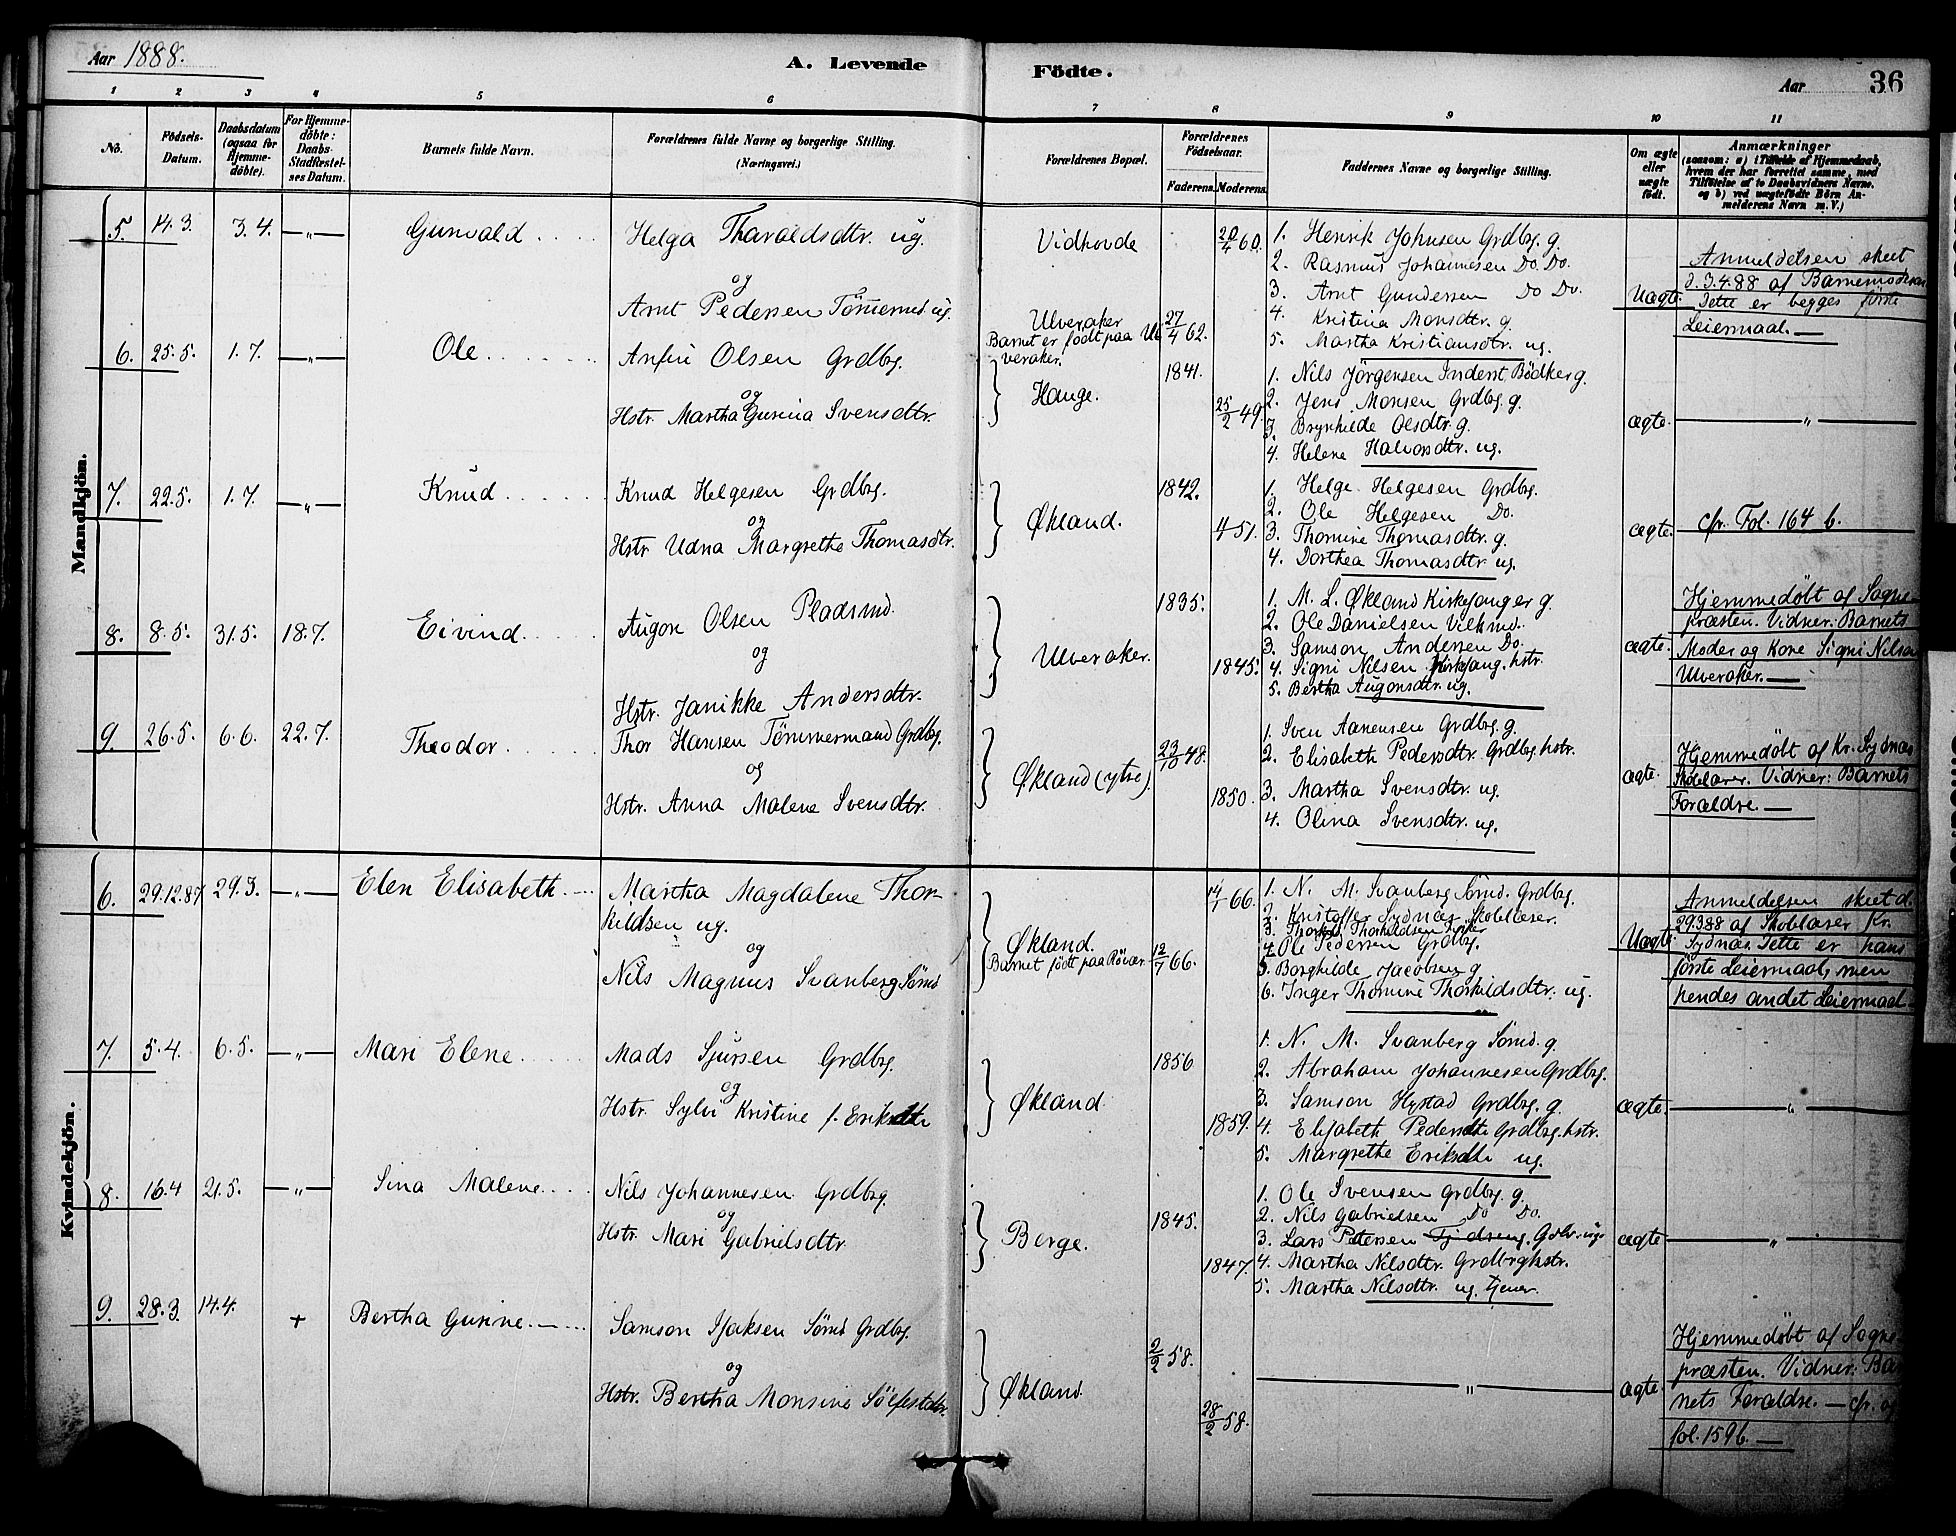 Aar 1888.
A. Levende Födte.
Aar
36
1 2 3 4 5 6 7 8 9 10 11
No.
Födsels-Datum.
Daabsdatum (ogsaa for Hjemme-döbte).
For Hjemme-döbte: Daabs-Stadfæstel-ses Datum.
Barnets fulde Navn.
Forældrenes fulde Navne og borgerlige Stilling. (Næringsvei.)
Forældrenes Bopæl.
Forældrenes Födselsaar.
Faderens. Moderens.
Faddernes Navne og borgerlige Stilling.
Om ægte eller uægte födt.
Anmærkninger
(saasom: a) i Tilfælde af Hjemmedaab, hvem der har forrettet samme, med Tilföielse af to Daabsvidners Navne, og b) ved uægtefödte Börn An-melderens Navn m. V.)
Mandkjön.
5. 14.3. 3.4. —„— Gunvald
Helga Tharaldsdtr. ug.
og
Arnt Pedersen Tömmermd. ug.
Vidhovde
Ulveraker
Barnet er født paa Ul
veraker.
27/4 62.
20/4 60.
1. Henrik Johnsen Grdbg. g.
2. Rasmus Johannesen Do. Do.
3. Arnt Gundersen Do Do.
4. Kristina Monsdtr. g.
5. Martha Kristiansdtr. ug.
Uægte.
Anmeldelsen skeet
d. 3.4.88 af Barnemoderen
Dette er begges første
Leiermaal. —
6. 25.5. 1.7. —„— Ole
Anfin Olsen Grdbg.
og
Hstr. Martha Gurina Svensdtr.
Hauge.
1841.
25/2 49.
1. Nils Jörgensen Inderst, Bödker g.
2. Jens Monsen Grdbg. g.
3. Brynhilde Olsdtr. g.
4. Helene Halvorsdtr. ug.
ægte.
—„—
7. 22.5. 1.7. —„— Knud
Knud Helgesen Grdbg.
og
Hstr. Udna Margrethe Thomasdtr.
Økland.
1842.
451.
1. Helge Helgesen Grdbg.
2. Ole Helgesen Do.
3. Thomine Thomasdtr. g.
4. Dorthea Thomasdtr. ug.
ægte.
cfr. Fol. 164 b.
8. 8.5. 31.5. 18.7. Eivind
Augon Olsen Pladsmd.
og
Hstr. Janikke Andersdtr.
Ulveraker.
1835.
1845.
1. M. L. Økland Kirkesanger g.
2. Ole Danielsen
3. Samson Andersen Do.
4. Signi Nilsen Kirkesang. hstr.
5. Bertha Augonsdtr. ug.
ægte.
Hjemmedøbt af Sogne-
præsten. Vidner: Barnets
Moder og Kone Signi Nilsen
Ulveraker. —
9. 26.5. 6.6. 22.7. Theodor
Thor Hansen Tömmermand Grdbg.
og
Hstr. Anna Malene Svensdtr.
Økland (ytre).
23/10 48.
1850.
1. Sven Aanensen Grdbg. g.
2. Elisabeth Pedersdtr. Grdbg. hstr.
3. Martha Svensdtr. ug.
4. Olina Svensdtr. ug.
ægte.
Hjemmedøbt af Kr. Sydnæs
Skolelærer. Vidner: Barnets
Forældre. —
Kvindekjön.
6. 29.12.87 29.3. —„— Elen Elisabeth
Martha Magdalene Thor-
kildsen ug.
og
Nils Magnus Svanberg Sömd
Økland.
Barnet født paa Røvær.
12/7 66.
14/1 66.
1. N. M. Svanberg Sömd. Grdbg.
2. Kristoffer Sydnæs Skolelærer.
3. Thorkildsen
4. Ole Pedersen Grdbg.
5. Borghilde Jacobsen g
6. Inger Thomine Thorkildsdtr. ug.
Uægte
Anmeldelsen skeet d.
29.3.88 af Skolelærer Kr.
Sydnæs. Dette er hans
første Leiermaal, men
hendes andet Leiermaal
7. 5.4. 6.5. —„— Mari Elene
Mads Sjursen Grdbg.
og
Hstr. Sylvi Kristine f. Eriksdtr
Økland
1856
1859.
1. N. M. Svanberg Sömd. g.
2. Abraham Johannesen Grdbg.
3. Samson Hystad Grdbg. g.
4. Elisabeth Pedersdtr Grdbg. hstr.
5. Margrethe Eriksdtr ug.
ægte
—„—
8. 16.4 21.5. —„— Sina Malene
Nils Johannesen Grdbg.
og
Hstr. Mari Gabrielsdtr
Berge.
1845.
1847.
1. Ole Svensen Grdbg. g.
2. Nils Gabrielsen Do Do.
3. Lars Petersen
4. Martha Nilsdtr. Grdbrghstr.
5. Martha Nilsdtr. ug. tjener.
ægte
—„—
9. 28.3. 14.4. + Bertha Gurine
Samson Isaksen Sömd Grdbg.
og
Hstr. Bertha Monsine Sölfestdtr.
Økland.
2/2 58.
28/2 58.
—„—
ægte
Hjemmedøbt af Sogne
præsten. Vidner: Bar
nets Forældre. — cfr. og
fol. 159 b. —